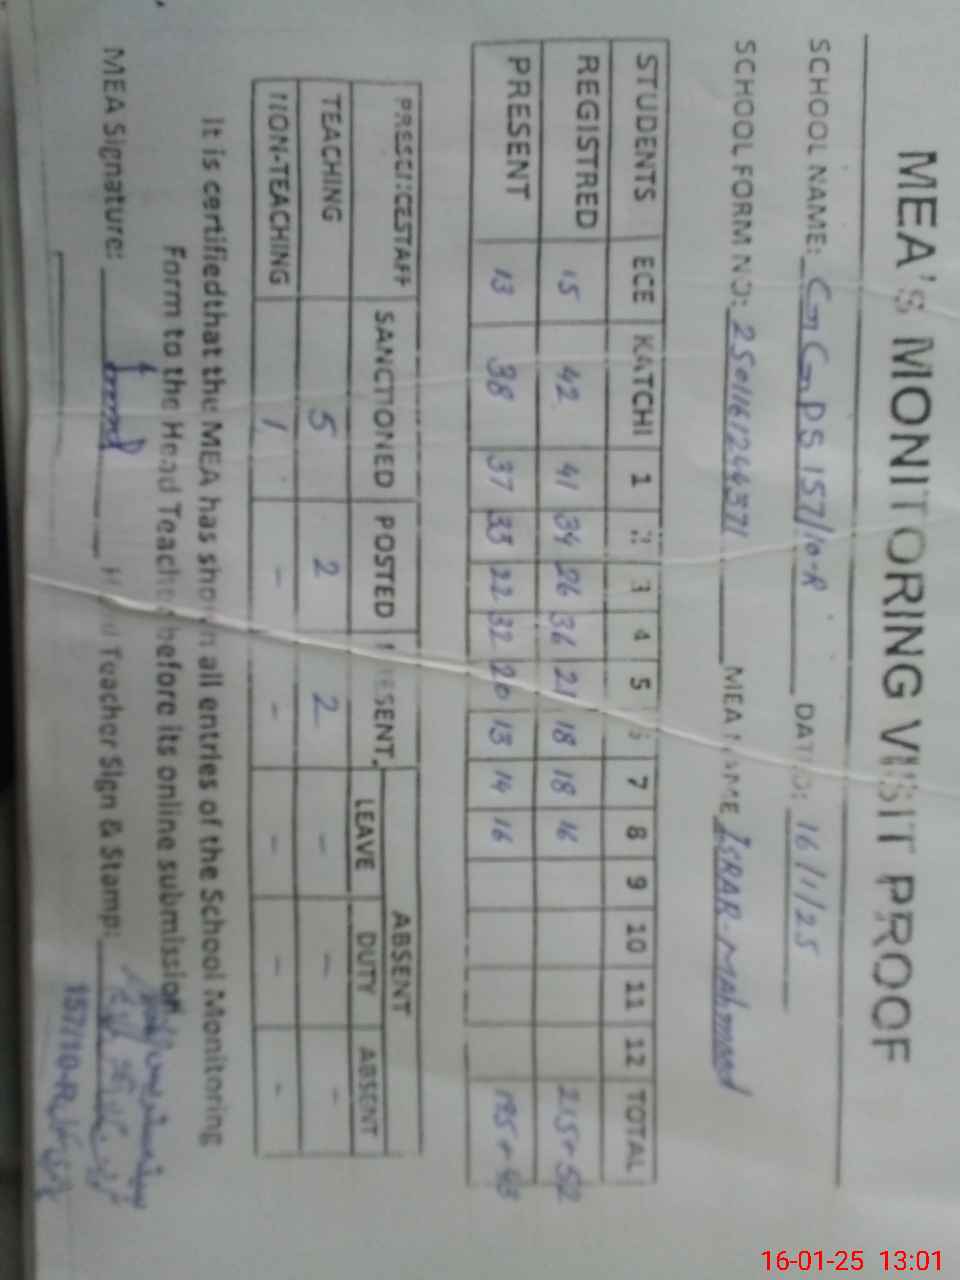 MEA's MONITORING VISIT PROOF
SCHOOL NAME: GmGmPS 157/10-R DATED: 16/1/25
SCHOOL FORM NO: 2501161244371 MEA NAME ISRAR-Mahmood
STUDENTS ECE KATCHI 1 2 3 4 5 6 7 8 9 10 11 12 TOTAL
REGISTRED 15 42 41 34 26 36 21 18 18 16 215+52
PRESENT 13 38 37 33 22 32 20 13 14 16 195+43
PRESENCESTAFF SANCTIONED POSTED PRESENT ABSENT
LEAVE DUTY ABSENT
TEACHING 5 2 2 - - -
NON-TEACHING 1 - - - - -
It is certifiedthat the MEA has shown all entries of the School Monitoring
Form to the Head Teacher before its online submission.
MEA Signature: Head Teacher Sign & Stamp:
157/10-R
16-01-25 13:01